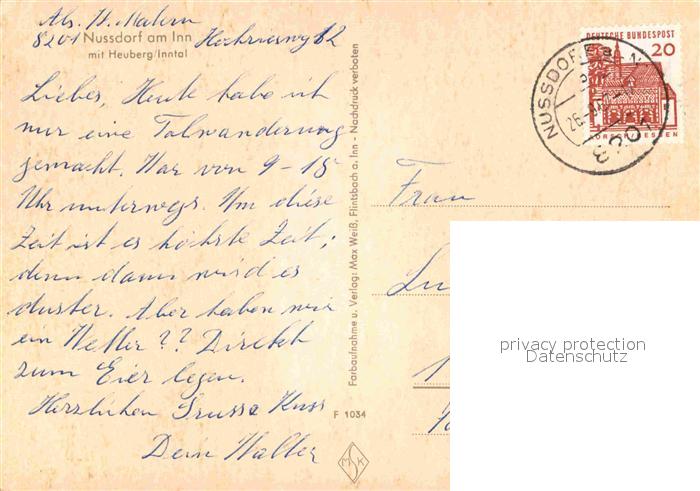 Abs. H. Malern
8201 Nussdorf am Inn Hochriesweg 12
mit Heuberg/Inntal
Liebes, Heute habe ich
nur eine Talwanderung
gemacht. War von 9-15
Uhr unterwegs. Um diese
Zeit ist es höchste Zeit,
denn dann wird es
duster. Aber haben wir
ein Wetter?? Direkt
zum Eier legen.
Herzlichen Gruss u Kuss
Dein Walter
Farbaufnahme u. Verlag: Max Weiß, Flintsbach a. Inn - Nachdruck verboten
F 1034
M S K
DEUTSCHE BUNDESPOST
20
NUSSDORF a. INN
8201
Frau
Lu
privacy protection
Datenschutz